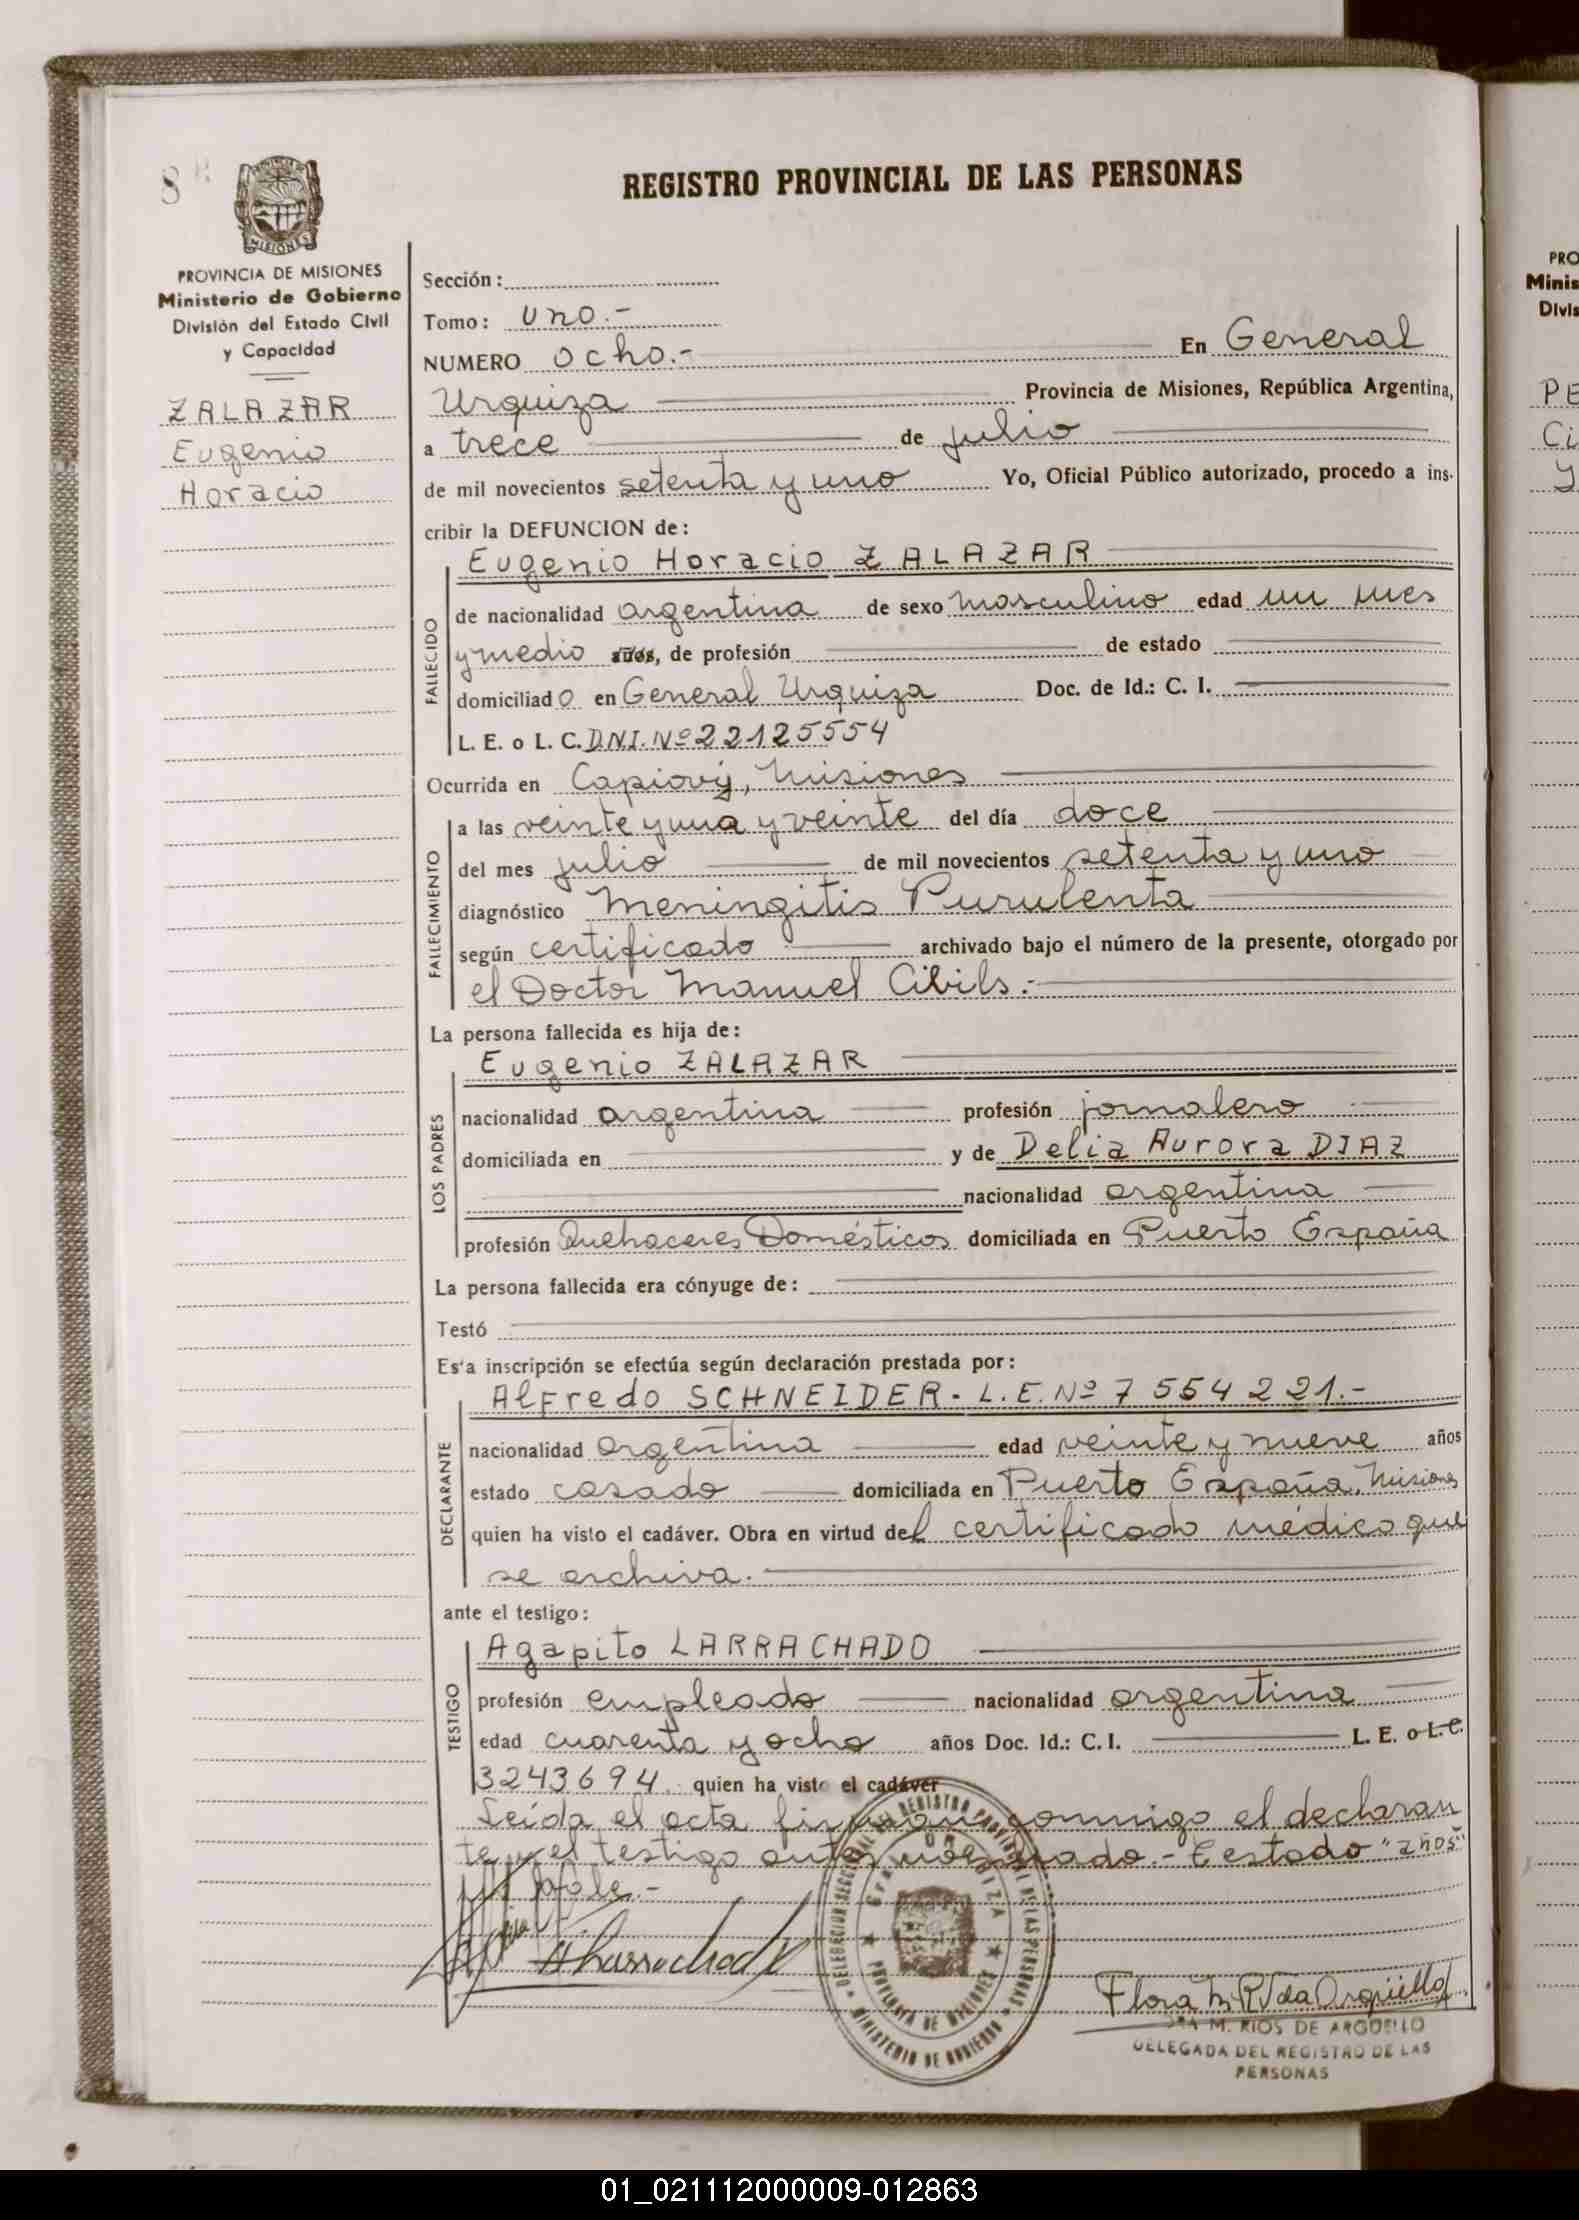 8
REGISTRO PROVINCIAL DE LAS PERSONAS
MISIONES
PROVINCIA DE MISIONES
Ministerio de Gobierno
División del Estado Civil
y Capacidad
ZALAZAR
Eugenio
Horacio
Sección:
Tomo: uno.-
NUMERO ocho.- En General
Urquiza Provincia de Misiones, República Argentina,
a trece de julio
de mil novecientos setenta y uno Yo, Oficial Público autorizado, procedo a ins-
cribir la DEFUNCION de:
Eugenio Horacio ZALAZAR
FALLECIDO
de nacionalidad argentina de sexo masculino edad un mes
y medio años, de profesión de estado
domiciliado en General Urquiza Doc. de Id.: C. I.
L. E. o L. C. D.N.I. Nº 22125554
Ocurrida en Capioví, Misiones
FALLECIMIENTO
a las veinte y una y veinte del día doce
del mes julio de mil novecientos setenta y uno
diagnóstico Meningitis Purulenta
según certificado archivado bajo el número de la presente, otorgado por
el Doctor Manuel Cibils.-
La persona fallecida es hija de:
Eugenio ZALAZAR
LOS PADRES
nacionalidad argentina profesión jornalero
domiciliada en y de Delia Aurora DIAZ
nacionalidad argentina
profesión Quehaceres Domésticos domiciliada en Puerto España
La persona fallecida era cónyuge de:
Testó
Esta inscripción se efectúa según declaración prestada por:
Alfredo SCHNEIDER - L.E. Nº 7554221.-
DECLARANTE
nacionalidad argentina edad veinte y nueve años
estado casado domiciliada en Puerto España, Misiones
quien ha visto el cadáver. Obra en virtud del certificado médico que
se archiva.-
ante el testigo:
Agapito LARRACHADO
TESTIGO
profesión empleado nacionalidad argentina
edad cuarenta y ocho años Doc. Id.: C. I. L. E. o L. C.
3243694 quien ha visto el cadáver
Leída el acta firman conmigo el declaran
te y el testigo antes mencionado.- Testado "años"
Vale.-
A Larrachado
Flora M. R. de Argüello
M. RIOS DE ARGÜELLO
DELEGADA DEL REGISTRO DE LAS
PERSONAS
DELEGACION SECCIONAL DEL REGISTRO PROVINCIAL DE LAS PERSONAS
MINISTERIO DE GOBIERNO
PROVINCIA DE MISIONES
PRO
Minis
Divis
PE
Ci
01_021112000009-012863